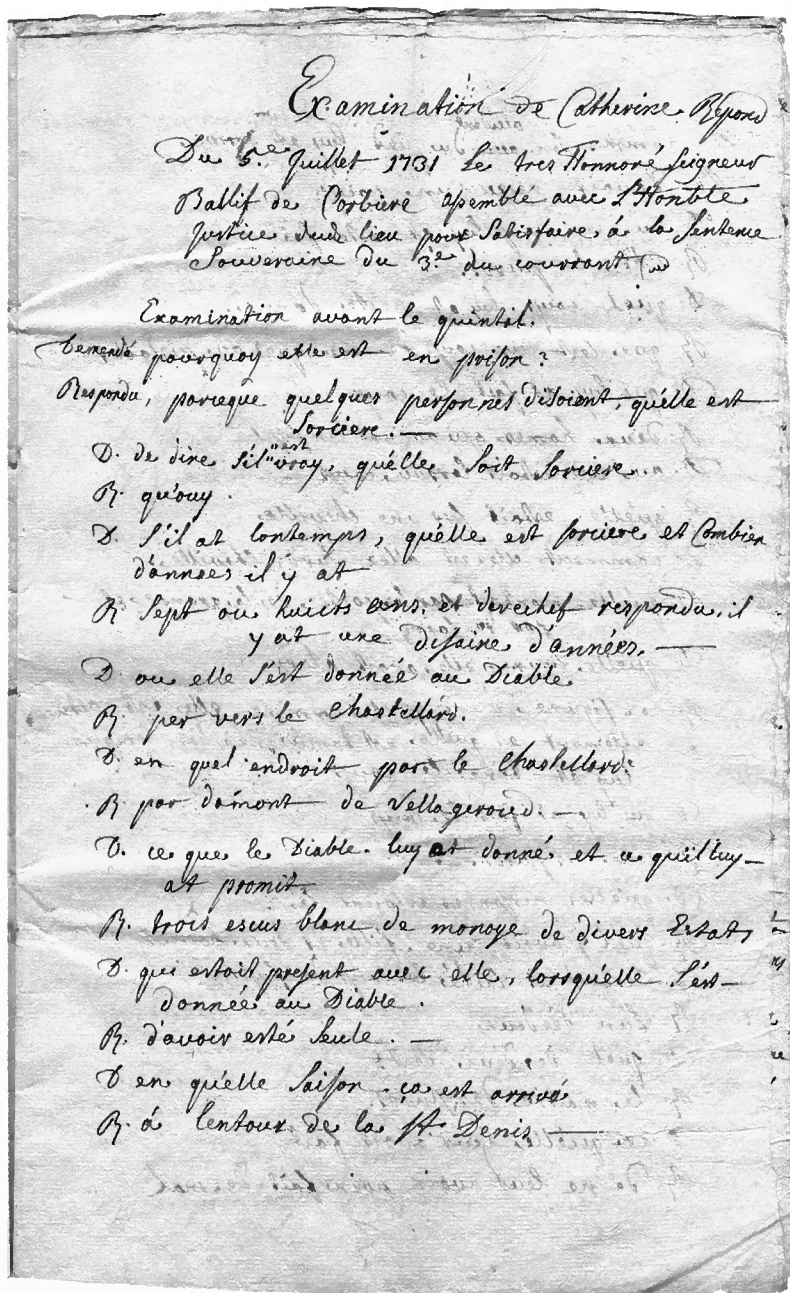 Examination de Catherine Repond
Du 5.e Juillet 1731 Le tres Honnoré seigneur
Ballif de Corbiere assemble avec L'Honble
Justice dudt lieu pour Satisfaire á la sentence
Souveraine du 3.e du courrant
Examination avant le quintal.
Demendé pourquoy elle est en prison?
Respondu, parceque quelques personnes disoient, qu'elle est
Sorciere. —
D. de dire s'il est vray, qu'elle soit Sorciere.
R. qu'ouy.
D. S'il at lontemps, qu'elle est sorciere et Combien
d'annees il y at
R Sept ou huicts ans, et derechef respondu, il
y at une disaine d'années. —
D ou elle s'est donnéé au Diable
R. per vers le Chastellard.
D. en quel endroit par le Chastellard:
R. par damont de Villagiroud. —
D. ce que le Diable luy at donné et ce qu'il luy
at promit
R. trois escus blanc de monoye de divers Estats
D. qui estoit present avec elle, lorsqu'elle s'est
donnéé au Diable.
R. d'avoir esté seule. —
D en qu'elle saison ça est arrivé
R. á lentour de la St Denis —